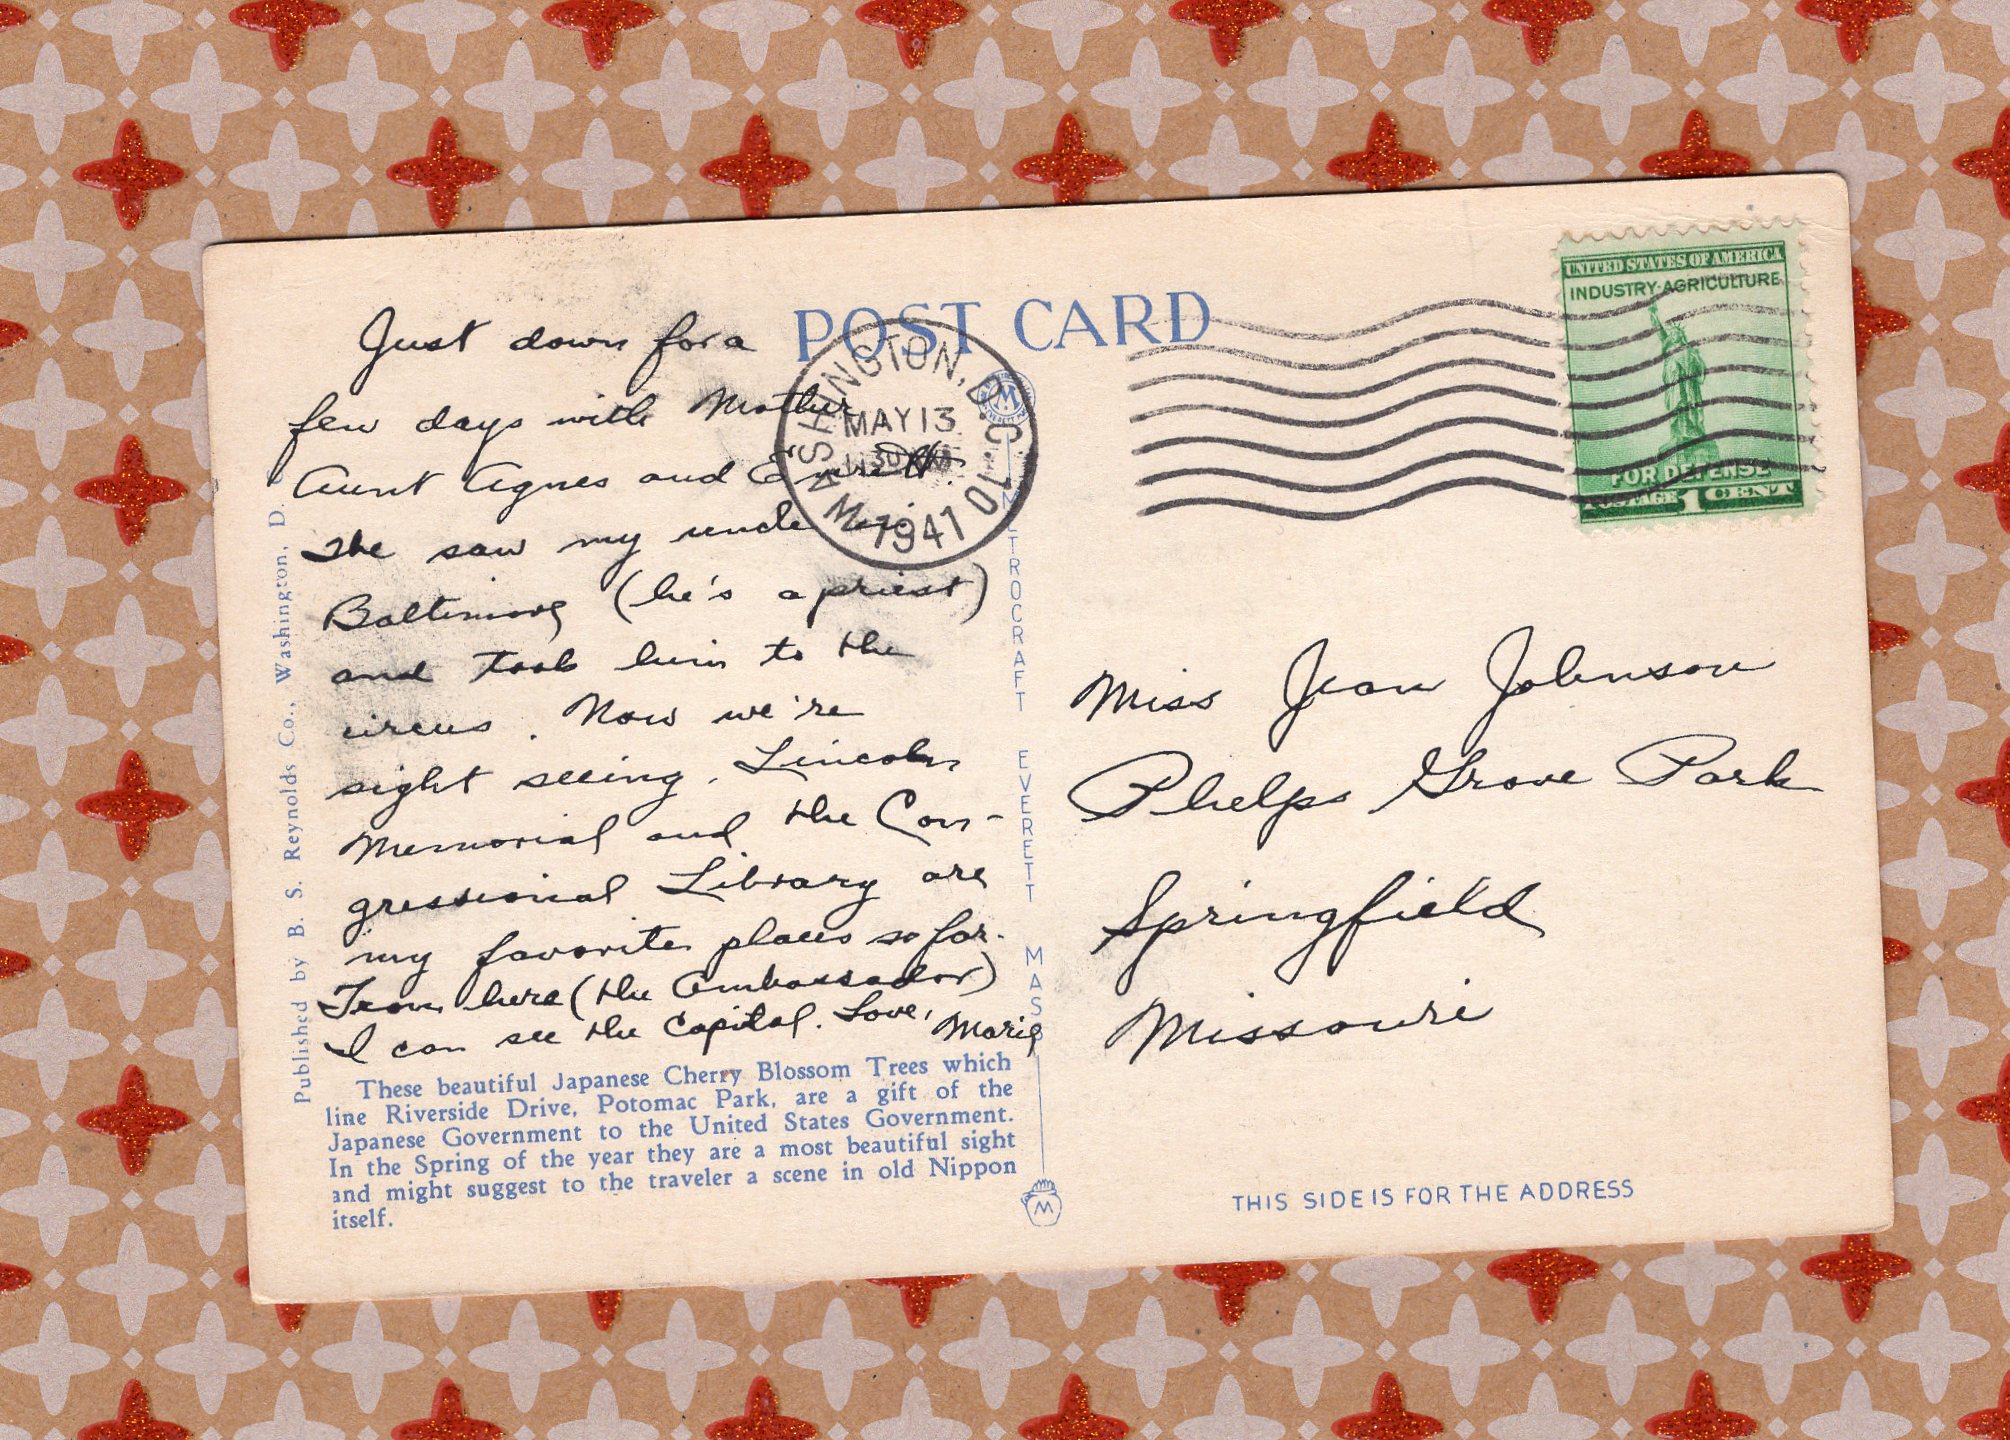 POST CARD
Just down for a
few days with Mother
Aunt Agnes and
The saw my uncle in
Baltimore (he's a priest)
and took him to the
circus. Now we're
sight seeing. Lincoln
Memorial and the Con-
gressional Library are
my favorite places so far.
From here (the Ambassador)
I can see the Capital. Love,
Marie
These beautiful Japanese Cherry Blossom Trees which
line Riverside Drive, Potomac Park, are a gift of the
Japanese Government to the United States Government.
In the Spring of the year they are a most beautiful sight
and might suggest to the traveler a scene in old Nippon
itself.
Published by B. S. Reynolds Co., Washington, D.
METROCRAFT EVERETT MASS
WASHINGTON, D.C.
MAY 13
1941
UNITED STATES OF AMERICA
INDUSTRY·AGRICULTURE
FOR DEFENSE
POSTAGE 1 CENT
Miss Jean Johnson
Phelps Grove Park
Springfield
Missouri
THIS SIDE IS FOR THE ADDRESS
M